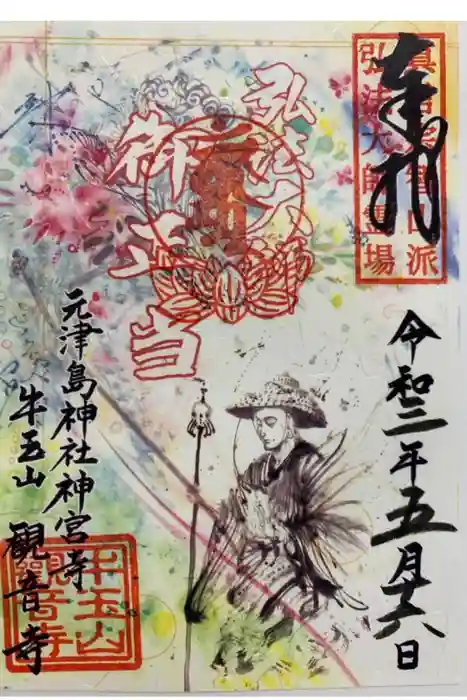 奉拝
真言宗智山派
弘法大師霊場
令和三年五月十六日
弘法大師
御正当
元津島神社神宮寺
牛玉山 観音寺
牛玉山
観音寺